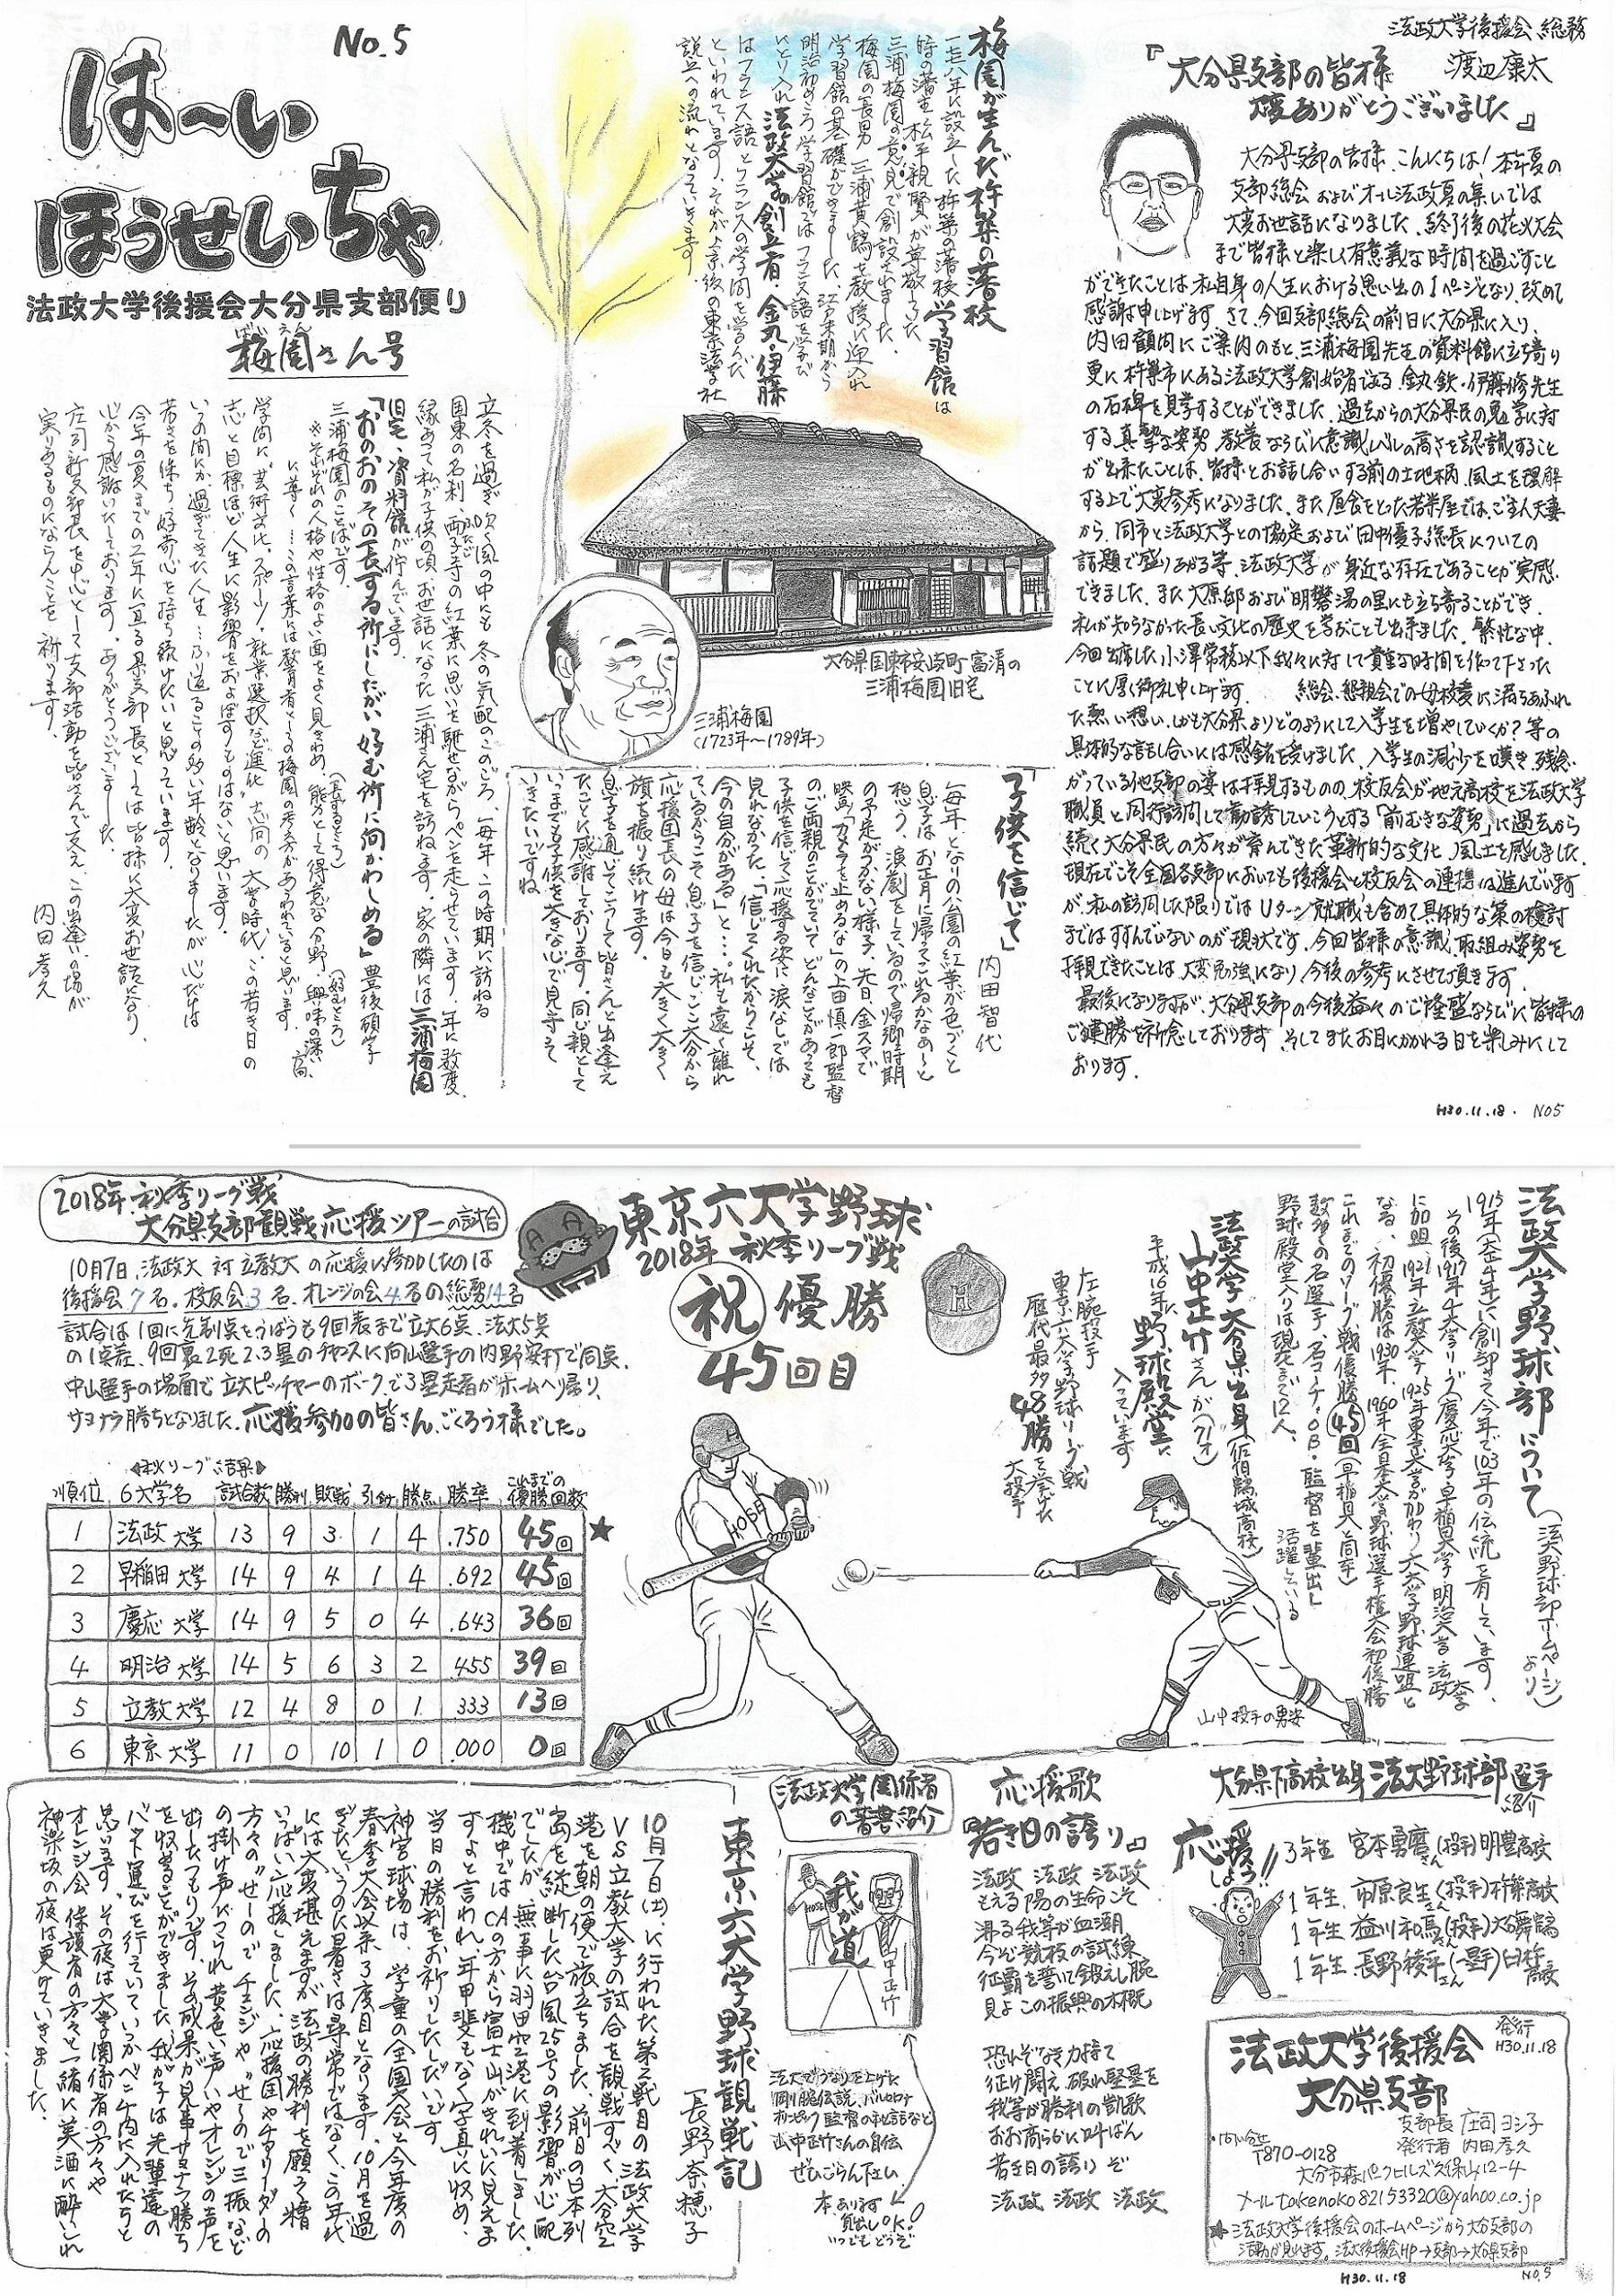 No.5
は〜い
ほうせいちゃ
法政大学後援会大分県支部便り
梅園さん号
法政大学後援会 総務
渡辺康太
『大分県支部の皆様
大変ありがとうございました』
大分県支部の皆様、こんにちは！本年夏の
支部総会およびオール法政夏の集いでは
大変お世話になりました。終了後の花火大会
まで皆様と楽しく有意義な時間を過ごすこと
ができたことは私自身の人生における思い出の1ページとなり、改めて
感謝申し上げます。さて、今回支部総会の前日に大分県に入り、
内田顧問にご案内のもと、三浦梅園先生の資料館に立ち寄り
更に杵築市にある法政大学創始者である金丸鉄・伊藤修先生
の石碑を見学することができました。過去からの大分県民の勉学に対
する真摯な姿勢、教養ならびに意識レベルの高さを認識すること
が出来たことは、皆様とお話し合いする前の土地柄、風土を理解
する上で大変参考になりました。また昼食をとった若栄屋では、ご主人夫妻
から、同市と法政大学との協定および田中優子総長についての
話題で盛りあがる等、法政大学が身近な存在であることが実感
できました。また大原邸および明礬湯の里にも立ち寄ることができ、
私が知らなかった長い文化の歴史を学ぶことも出来ました。繁忙な中、
今回出席した小澤常務以下我々に対して貴重な時間を作って下さった
ことに厚く御礼申し上げます。 総会、懇親会での母校愛に満ちあふれ
た熱い想い、しかも大分県よりどのようにして入学生を増やしていくか？等の
具体的な話し合いには感銘を受けました。入学生の減少を嘆き、残念
がっている他支部の姿は拝見するものの、校友会が地元高校を法政大学
職員と同行訪問して勧誘していこうとする「前むきな姿勢」に過去から
続く大分県民の方々が育んできた革新的な文化、風土を感じました。
現在でこそ全国各支部においても後援会と校友会の連携は進んでいます
が、私の訪問した限りではUターン就職も含めて具体的な策の検討
まではすすんでいないのが現状です。今回皆様の意識、取組み姿勢を
拝見できたことは大変勉強になり、今後の参考にさせて頂きます。
最後になりますが、大分県支部の今後益々のご隆盛ならびに皆様の
ご健勝を祈念しております。そしてまたお目にかかれる日を楽しみにして
おります。
H30.11.18. NO5
梅園が生んだ杵築の藩校
学習館は
一七八八年に設立した杵築の藩校
時の藩主、松平親賢が尊敬してた
三浦梅園の意見で創設されました。
梅園の長男 三浦黄鶴を教授に迎入れ
学習館の基礎ができました。江戸末期から
明治初めころ学習館ではフランス語を学び
にとり入れ法政大学の創立者、金丸・伊藤
はフランス語とフランスの学問を学んだ
といわれています。それが上京後の東京法学社
設立への流れとなっていきます。
大分県国東市安岐町富清の
三浦梅園旧宅
三浦梅園
(1723年〜1789年)
立冬を過ぎ吹く風の中にも冬の気配のこのごろ、毎年この時期に訪ねる
国東の名刹、両子寺の紅葉に思いを馳せながらペンを走らせています。年に数度、
縁あって私が子供の頃お世話になった三浦さん宅を訪ねます。家の隣には三浦梅園
旧宅、資料館が佇んでいます。
「おのおのその長ずる所にしたがい好む所に向かわしめる」豊後碩学
三浦梅園のことばです。
※それぞれの人格や性格のよい面をよく見きわめ、能力として得意な分野、興味の深い方向、
に導く…この言葉には賢者としての梅園の考え方があらわれていると思います。
学問に、芸術文化、スポーツ、就業選択など進化、志向の大学時代、この若き日の
志と目標ほど人生に影響をおよぼすものはないと思います。
いつの間にか過ぎてきた人生…ふり返ることの多い年齢となりましたが心だけは
若さを保ち好奇心を持ち続けたいと思っています。
今年の夏までの二年に亘る県支部長としては皆様に大変お世話になり、
心から感謝いたしております。ありがとうございました。
庄司新支部長を中心として支部活動を皆さんで支え、この出逢いの場が
実りあるものにならんことを祈ります。
内田孝久
「子供を信じて」 内田智代
毎年、となりの公園の紅葉が色づくと
息子はお正月に帰ってこれるかなあ〜と
想う。演劇をしているので帰郷時期
の予定がつかない様子。先日、金スマで
映画「カメラを止めるな」の上田慎一郎監督
のご両親のことがでていて どんなことがあっても
子供を信じて応援する姿に涙なしでは
見れなかった。「信じてくれたからこそ、
今の自分がある」と…。私も遠く離れ
ているからこそ息子を信じここ大分から
応援団長の母は今日も大きく大きく
旗を振り続けます。
息子を通じてこうして皆さんと出逢え
たことに感謝しております。同じ親として
いつまでも子供を大きな心で見守って
いきたいですね。
2018年 秋季リーグ戦
大分県支部観戦応援ツアーの試合
10月7日、法政大 対 立教大の応援に参加したのは
後援会7名、校友会3名、オレンジの会4名の総勢14名
試合は1回に先制点をうばうも9回表まで立大6点、法大5点
の1点差、9回裏2死2,3塁のチャンスに向山選手の内野安打で同点、
中山選手の場面で立大ピッチャーのボークで3塁走者がホームへ帰り、
サヨナラ勝ちとなりました。応援参加の皆さん、ごくろう様でした。
東京六大学野球
2018年 秋季リーグ戦
祝 優勝
45回目
《秋リーグ結果》
順位 6大学名 試合数 勝利 敗戦 引分 勝点 勝率 これまでの優勝回数
1 法政大学 13 9 3 1 4 .750 45回 ★
2 早稲田大学 14 9 4 1 4 .692 45回
3 慶応大学 14 9 5 0 4 .643 36回
4 明治大学 14 5 6 3 2 .455 39回
5 立教大学 12 4 8 0 1 .333 13回
6 東京大学 11 0 10 1 0 .000 0回
H
HOSEI
法政大学野球部について
(法大野球部ホームページより)
1915年(大正4年)に創部されて今年で103年の伝統を有しています。
その後1917年4大学リーグ(慶応大学、早稲田大学、明治大学、法政大学)
に加盟、1921年立教大学、1925年東京大学が加わり六大学野球連盟と
なる。初優勝は1930年、1960年全日本大学野球選手権大会初優勝
これまでのリーグ戦優勝45回(早稲田と同率)
数多くの名選手、名コーチ、OB・監督を輩出し活躍している
野球殿堂入りは現在まで12人。
法政大学 大分県出身(佐伯鶴城高校)
山中正竹さんが
平成16年に野球殿堂に
入っています
左腕投手
東京六大学野球リーグ戦
歴代最多48勝を挙げた
大投手
山中投手の勇姿
東京六大学野球観戦記
長野奈穂子
10月7日、に行われた第二戦目の法政大学
VS立教大学の試合を観戦すべく大分空
港を朝の便で旅立ちました。前日の日本列
島を縦断した台風25号の影響が心配
でしたが、無事に羽田空港に到着しました。
機中ではCAの方から富士山がきれいに見えま
すよと言われ、年甲斐もなく写真に収め、
当日の勝利をお祈りしたしだいです
神宮球場は、学童の全国大会と今年度の
春季大会以来3度目となります。10月を過
ぎたというのに暑さは尋常ではなく、この年代
には大変堪えますが法政の勝利を願って精
いっぱい応援しました。応援団やチアリーダーの
方々の"せーの"でチェンジや、"せーの"で三振など
の掛け声につられ、黄色い声いやオレンジの声を
出したつもりです。その成果が見事サヨナラ勝ち
を収めることができました。我が子は先輩達の
バット運びを行っていていつかベンチ内に入れたらと
思います。その夜は大学関係者の方々や
オレンジ会、保護者の方々と一緒に美酒に酔いしれ
神楽坂の夜は更けていきました。
法政大学関係者
の著書紹介
我が道
山中正竹
オリンピック監督の秘話など
山中正竹さんの自伝
ぜひごらん下さい
本、あります
貸出しOK！
いつでもどうぞ
応援歌
『若き日の誇り』
法政 法政 法政
もえる陽の生命こそ
滾る我等が血潮
今ぞ競技の試練
征覇を誓いて鍛えし腕
見よこの振興の大概
恐れぞなき力持て
征け闘え 破れ堅塁を
我等が勝利の凱歌
おお高らかに叫ばん
若き日の誇りぞ
法政 法政 法政
大分県下高校出身 法大野球部選手
紹介
応援しよう!!
3年生 宮本勇磨さん(投手)明豊高校
1年生 市原良生さん(投手)杵築高校
1年生 益川和馬さん(投手)大分舞鶴
1年生 長野稜平さん(一塁手)臼杵高校
発行
H30.11.18
法政大学後援会
大分県支部
支部長 庄司ヨシ子
発行者 内田孝久
・問い合せ
〒870-0128
大分市森パークヒルズ久保山12-4
メール takenoko82153320@yahoo.co.jp
★法政大学後援会のホームページから大分支部の
活動が見れます。法大後援会HP→支部→大分県支部
H30.11.18 NO.5